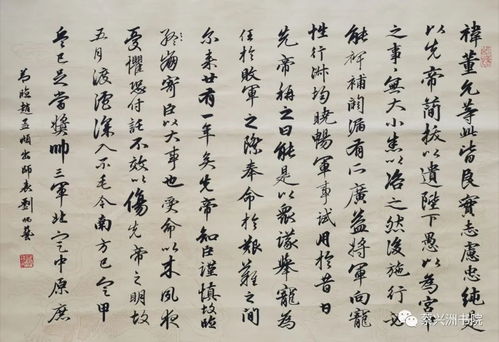 禕董允等此皆良實志慮忠純是
以先帝簡拔以遺陛下愚以為宮
之事無大小悉以咨之然後施行必
能裨補闕漏有所廣益將軍向寵
性行淑均曉暢軍事試用於昔日
先帝稱之曰能是以眾議舉寵為
任於敗軍之際奉命於艱難之間
尔來廿有一年矣先帝知臣謹慎故臨
崩寄臣以大事也受命以來夙夜
憂懼恐付託不效以傷先帝之明故
五月渡瀘深入不毛今南方已定甲
兵已足當獎帥三軍北定中原庶
節臨趙孟頫出師表劉
蔡兴洲书院